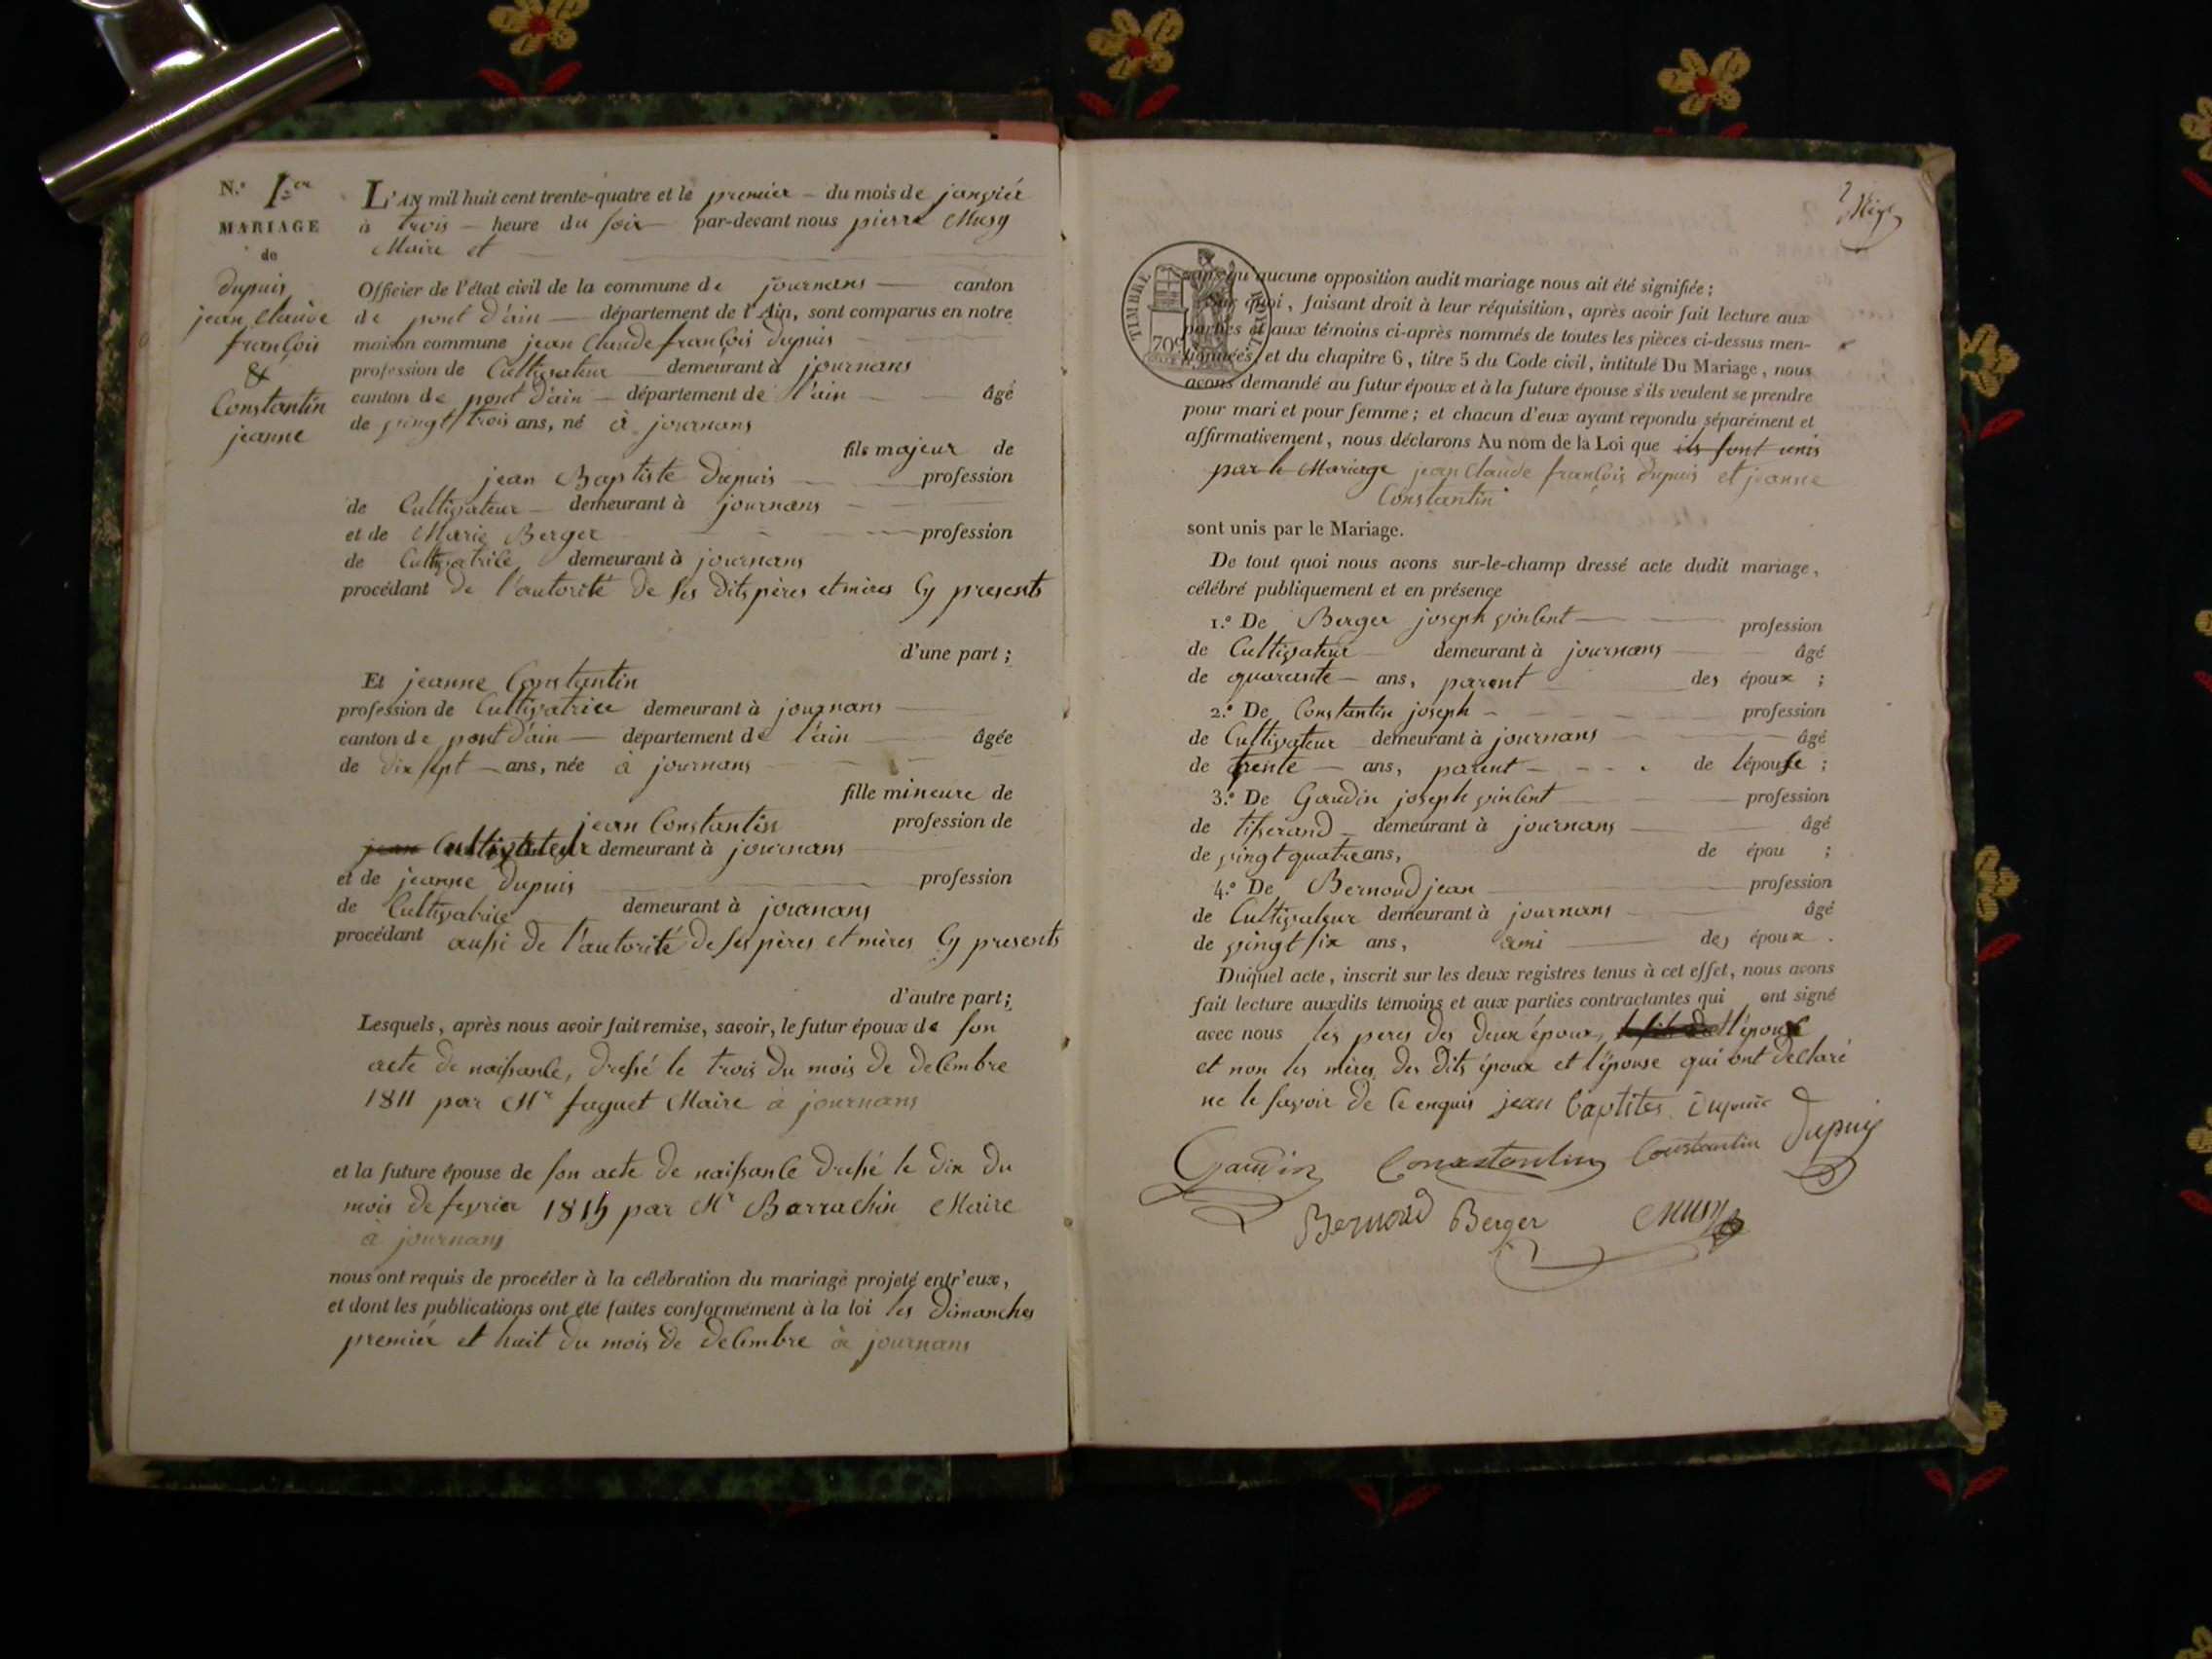 N.° 1er
MARIAGE
de
dupuis
jean Claude
françois
&
Constantin
jeanne
L'AN mil huit cent trente-quatre et le premier du mois de janvier
à trois heure du soir par-devant nous pierre Musy
Maire et
Officier de l'état civil de la commune de journans canton
de pont d'ain département de l'Ain, sont comparus en notre
maison commune jean Claude françois dupuis
profession de Cultivateur demeurant à journans
canton de pont d'ain département de l'ain âgé
de vingt trois ans, né à journans
fils majeur de
jean Baptiste dupuis profession
de Cultivateur demeurant à journans
et de Marie Berger profession
de Cultivatrice demeurant à journans
procédant de l'autorité de ses dits pères et mères Cy presents
d'une part ;
Et jeanne Constantin
profession de Cultivatrice demeurant à journans
canton de pont d'ain département de l'ain âgée
de dix sept ans, née à journans
fille mineure de
jean Constantin profession de
jean Cultivateur demeurant à journans
et de jeanne dupuis profession
de Cultivatrice demeurant à journans
procédant aussi de l'autorité de ses pères et mères Cy presents
d'autre part ;
Lesquels, après nous avoir fait remise, savoir, le futur époux de son
acte de naissance, dressé le trois du mois de decembre
1811 par Mr faguet Maire à journans
et la future épouse de son acte de naissance dressé le dix du
mois de fevrier par Mr Barrachin Maire
à journans
nous ont requis de procéder à la célébration du mariage projeté entr'eux,
et dont les publications ont été faites conformément à la loi les dimanches
premier et huit du mois de decembre à journans
2
TIMBRE ROYAL
70c
sans qu'aucune opposition audit mariage nous ait été signifiée ;
Sur quoi, faisant droit à leur réquisition, après avoir fait lecture aux
parties et aux témoins ci-après nommés de toutes les pièces ci-dessus men-
tionnées, et du chapitre 6, titre 5 du Code civil, intitulé Du Mariage, nous
avons demandé au futur époux et à la future épouse s'ils veulent se prendre
pour mari et pour femme ; et chacun d'eux ayant répondu séparément et
affirmativement, nous déclarons Au nom de la Loi que ils sont unis
par le Mariage jean Claude françois dupuis et jeanne
Constantin
sont unis par le Mariage.
De tout quoi nous avons sur-le-champ dressé acte dudit mariage,
célébré publiquement et en présence
1.° De Berger joseph vincent profession
de Cultivateur demeurant à journans âgé
de quarante ans, parent des époux ;
2.° De Constantin joseph profession
de Cultivateur demeurant à journans âgé
de trente ans, parent de l'épouse ;
3.° De Gaudin joseph vincent profession
de tisserand demeurant à journans âgé
de vingt quatre ans, de épou ;
4.° De Bernoud jean profession
de Cultivateur demeurant à journans âgé
de vingt six ans, ami des époux.
Duquel acte, inscrit sur les deux registres tenus à cet effet, nous avons
fait lecture auxdits témoins et aux parties contractantes qui ont signé
avec nous les peres des deux époux, l'époux
et non les mères des dits époux et l'épouse qui ont declaré
ne le savoir de ce enquis jean baptites Dupuis
Gaudin Constantin Constantin Dupuis
Bernoud Berger Musy